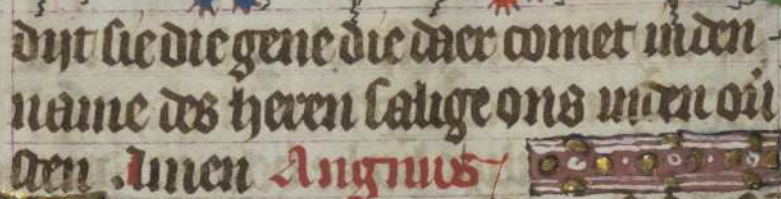 dijt sie die gene die daer comet inden
name des heren salige ons inden oū
sten Amen Angnus